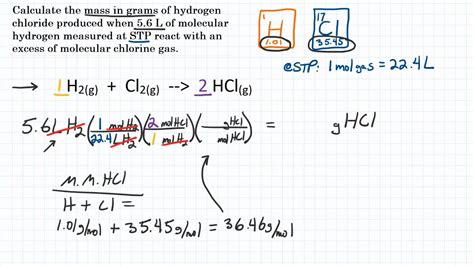 Calculate the mass in grams of hydrogen
chloride produced when 5.6 L of molecular
hydrogen measured at STP react with an
excess of molecular chlorine gas.
1
H
1.01
17
Cl
35.45
@STP: 1 mol gas = 22.4 L
→ 1 H2(g) + Cl2(g) --> 2 HCl(g)
5.6 L H2 (1 mol H2 / 22.4 L H2) (2 mol HCl / 1 mol H2) ( g HCl / mol HCl) = g HCl
m.m. HCl
H + Cl =
1.01 g/mol + 35.45 g/mol = 36.46 g/mol